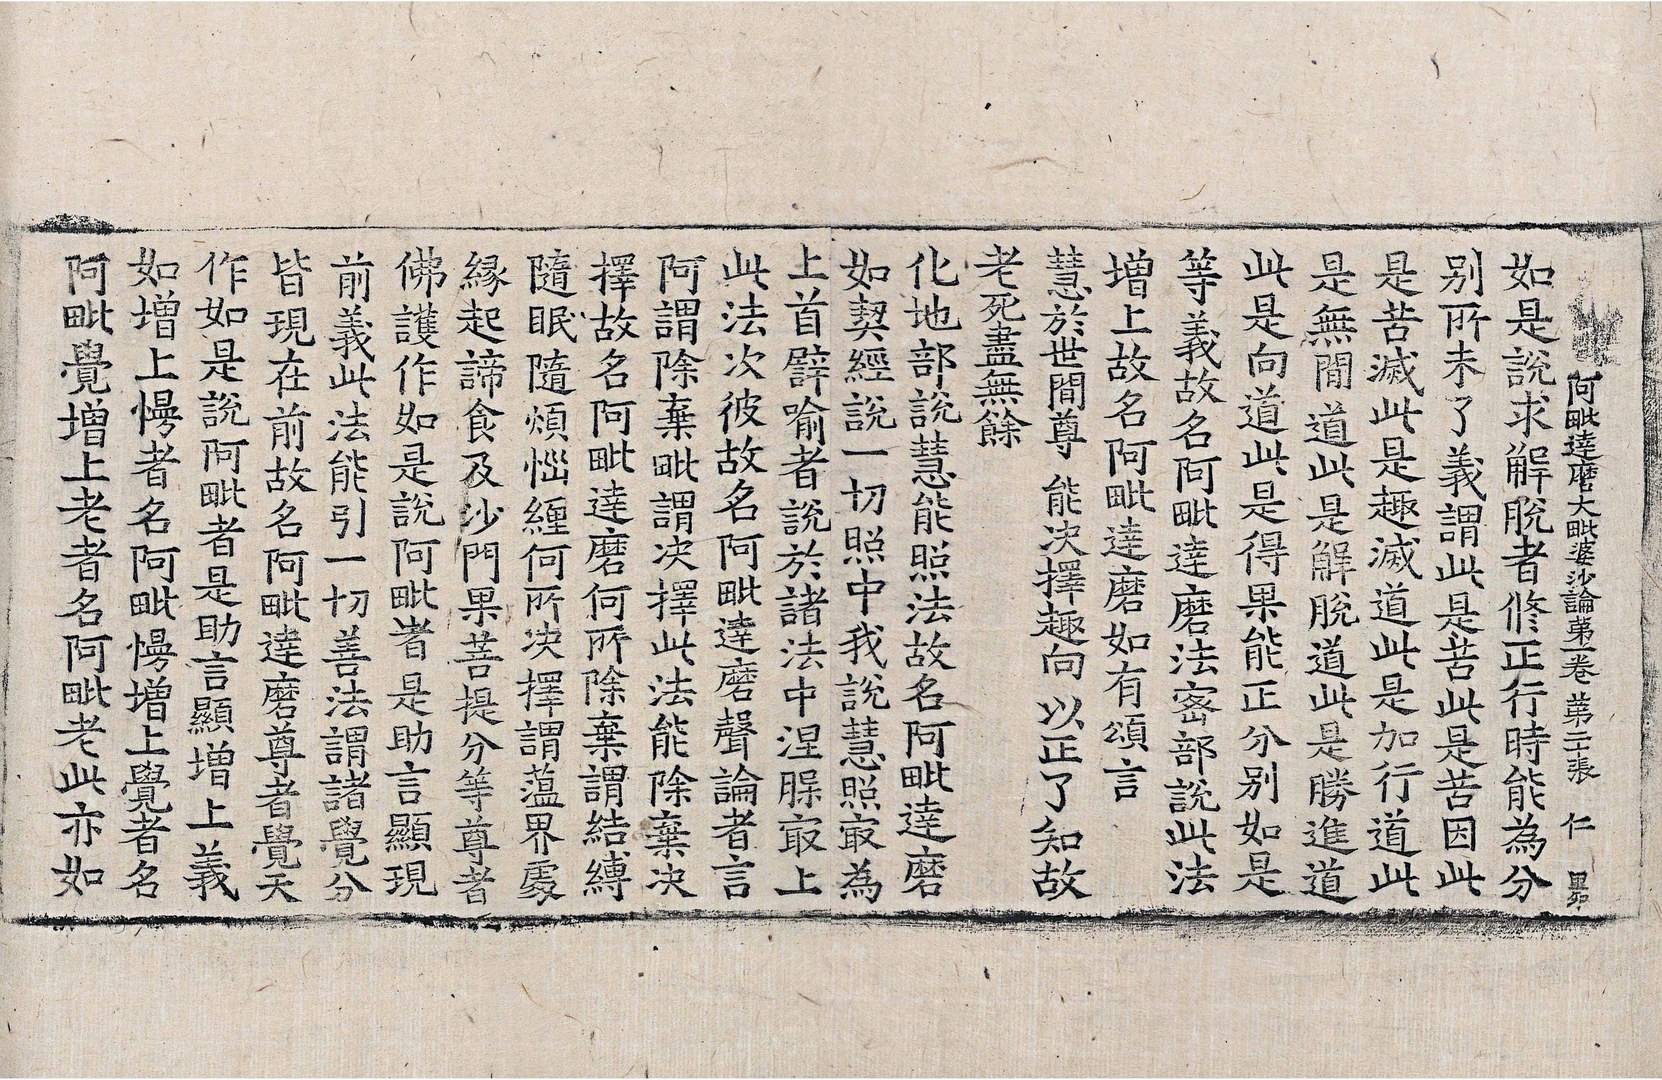 阿毗達磨大毗婆沙論第一卷 第二十張 仁
如是說求解脫者修正行時能為分
別所未了義謂此是苦此是苦因此
是苦滅此是趣滅道此是加行道此
是無間道此是解脫道此是勝進道
此是向道此是得果能正分別如是
等義故名阿毗達磨法密部說此法
增上故名阿毗達磨如有頌言
慧於世間尊 能决擇趣向 以正了知故
老死盡無餘
化地部說慧能照法故名阿毗達磨
如契經說一切照中我說慧照冣為
上首譬喻者說於諸法中涅槃冣上
此法次彼故名阿毗達磨聲論者言
阿謂除棄毗謂决擇此法能除棄决
擇故名阿毗達磨何所除棄謂結縛
隨眠隨煩惱纏何所决擇謂蘊界處
緣起諦食及沙門果菩提分等尊者
佛護作如是說阿毗者是助言顯現
前義此法能引一切善法謂諸覺分
皆現在前故名阿毗達磨尊者覺天
作如是說阿毗者是助言顯增上義
如增上慢者名阿毗慢增上覺者名
阿毗覺增上老者名阿毗老此亦如